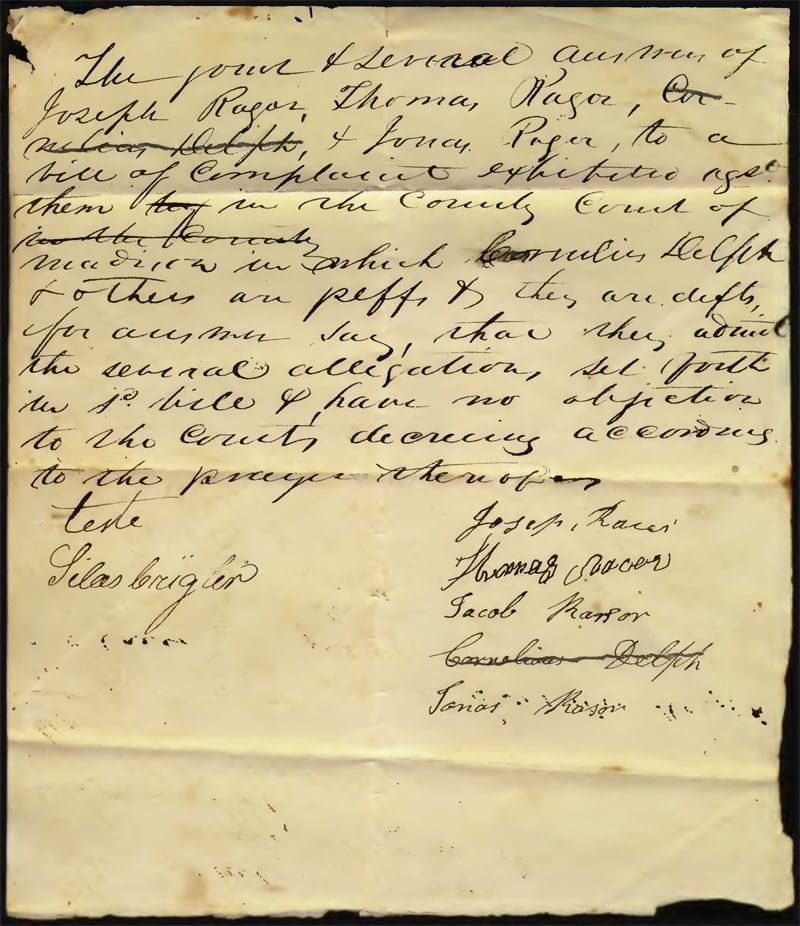 The joint & several answer of
Joseph Razor, Thomas Razor, Cor-
nelius Delph, & Jonas Razor, to a
bill of Complaint exhibited agst
them by in the County Court of
in the County
madison in which Cornelius Delph
& others are pltffs & they are defts,
for answer say, that they admit
the several allegations set forth
in sd. bill & have no objection
to the Courts decreeing according
to the prayer thereof
teste
Silas Crigler
Joseph
Thomas
Jacob Rasor
Cornelius Delph
Jonas Rasor